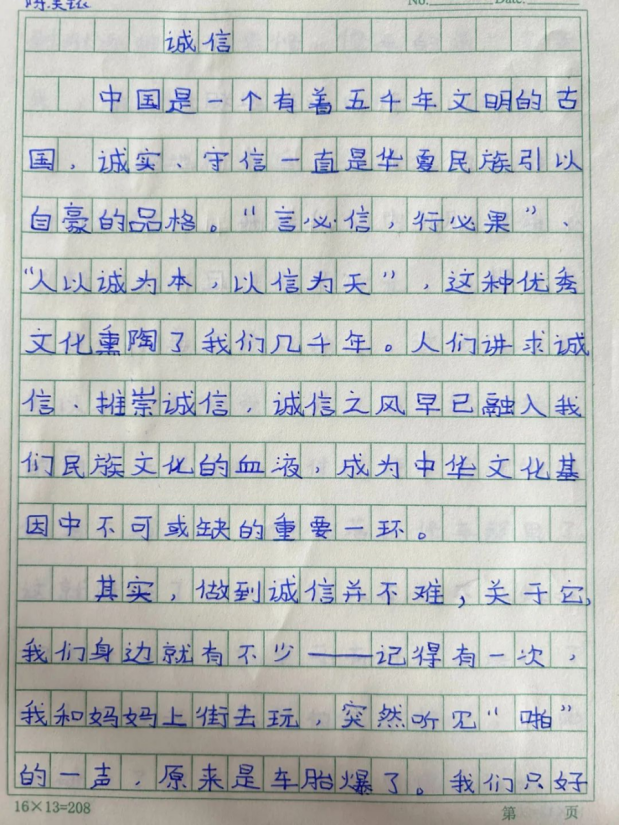 No. Date.
诚信
中国是一个有着五千年文明的古
国，诚实、守信一直是华夏民族引以
自豪的品格。“言必信，行必果”、
“人以诚为本，以信为天”，这种优秀
文化熏陶了我们几千年。人们讲求诚
信、推崇诚信，诚信之风早已融入我
们民族文化的血液，成为中华文化基
因中不可或缺的重要一环。
其实，做到诚信并不难，关于它，
我们身边就有不少——记得有一次，
我和妈妈上街去玩，突然听见“啪”
的一声，原来是车胎爆了。我们只好
16×13=208 第 页